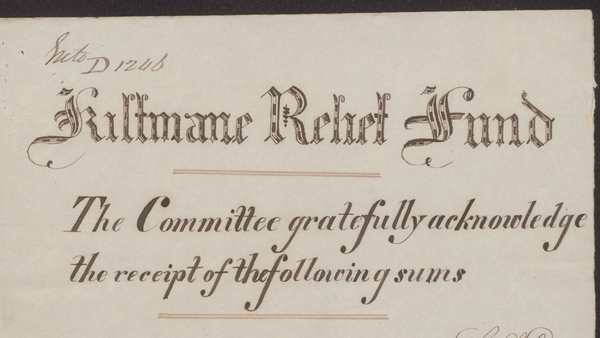 D 1246
Kilfinane Relief Fund
The Committee gratefully acknowledge
the receipt of the following sums